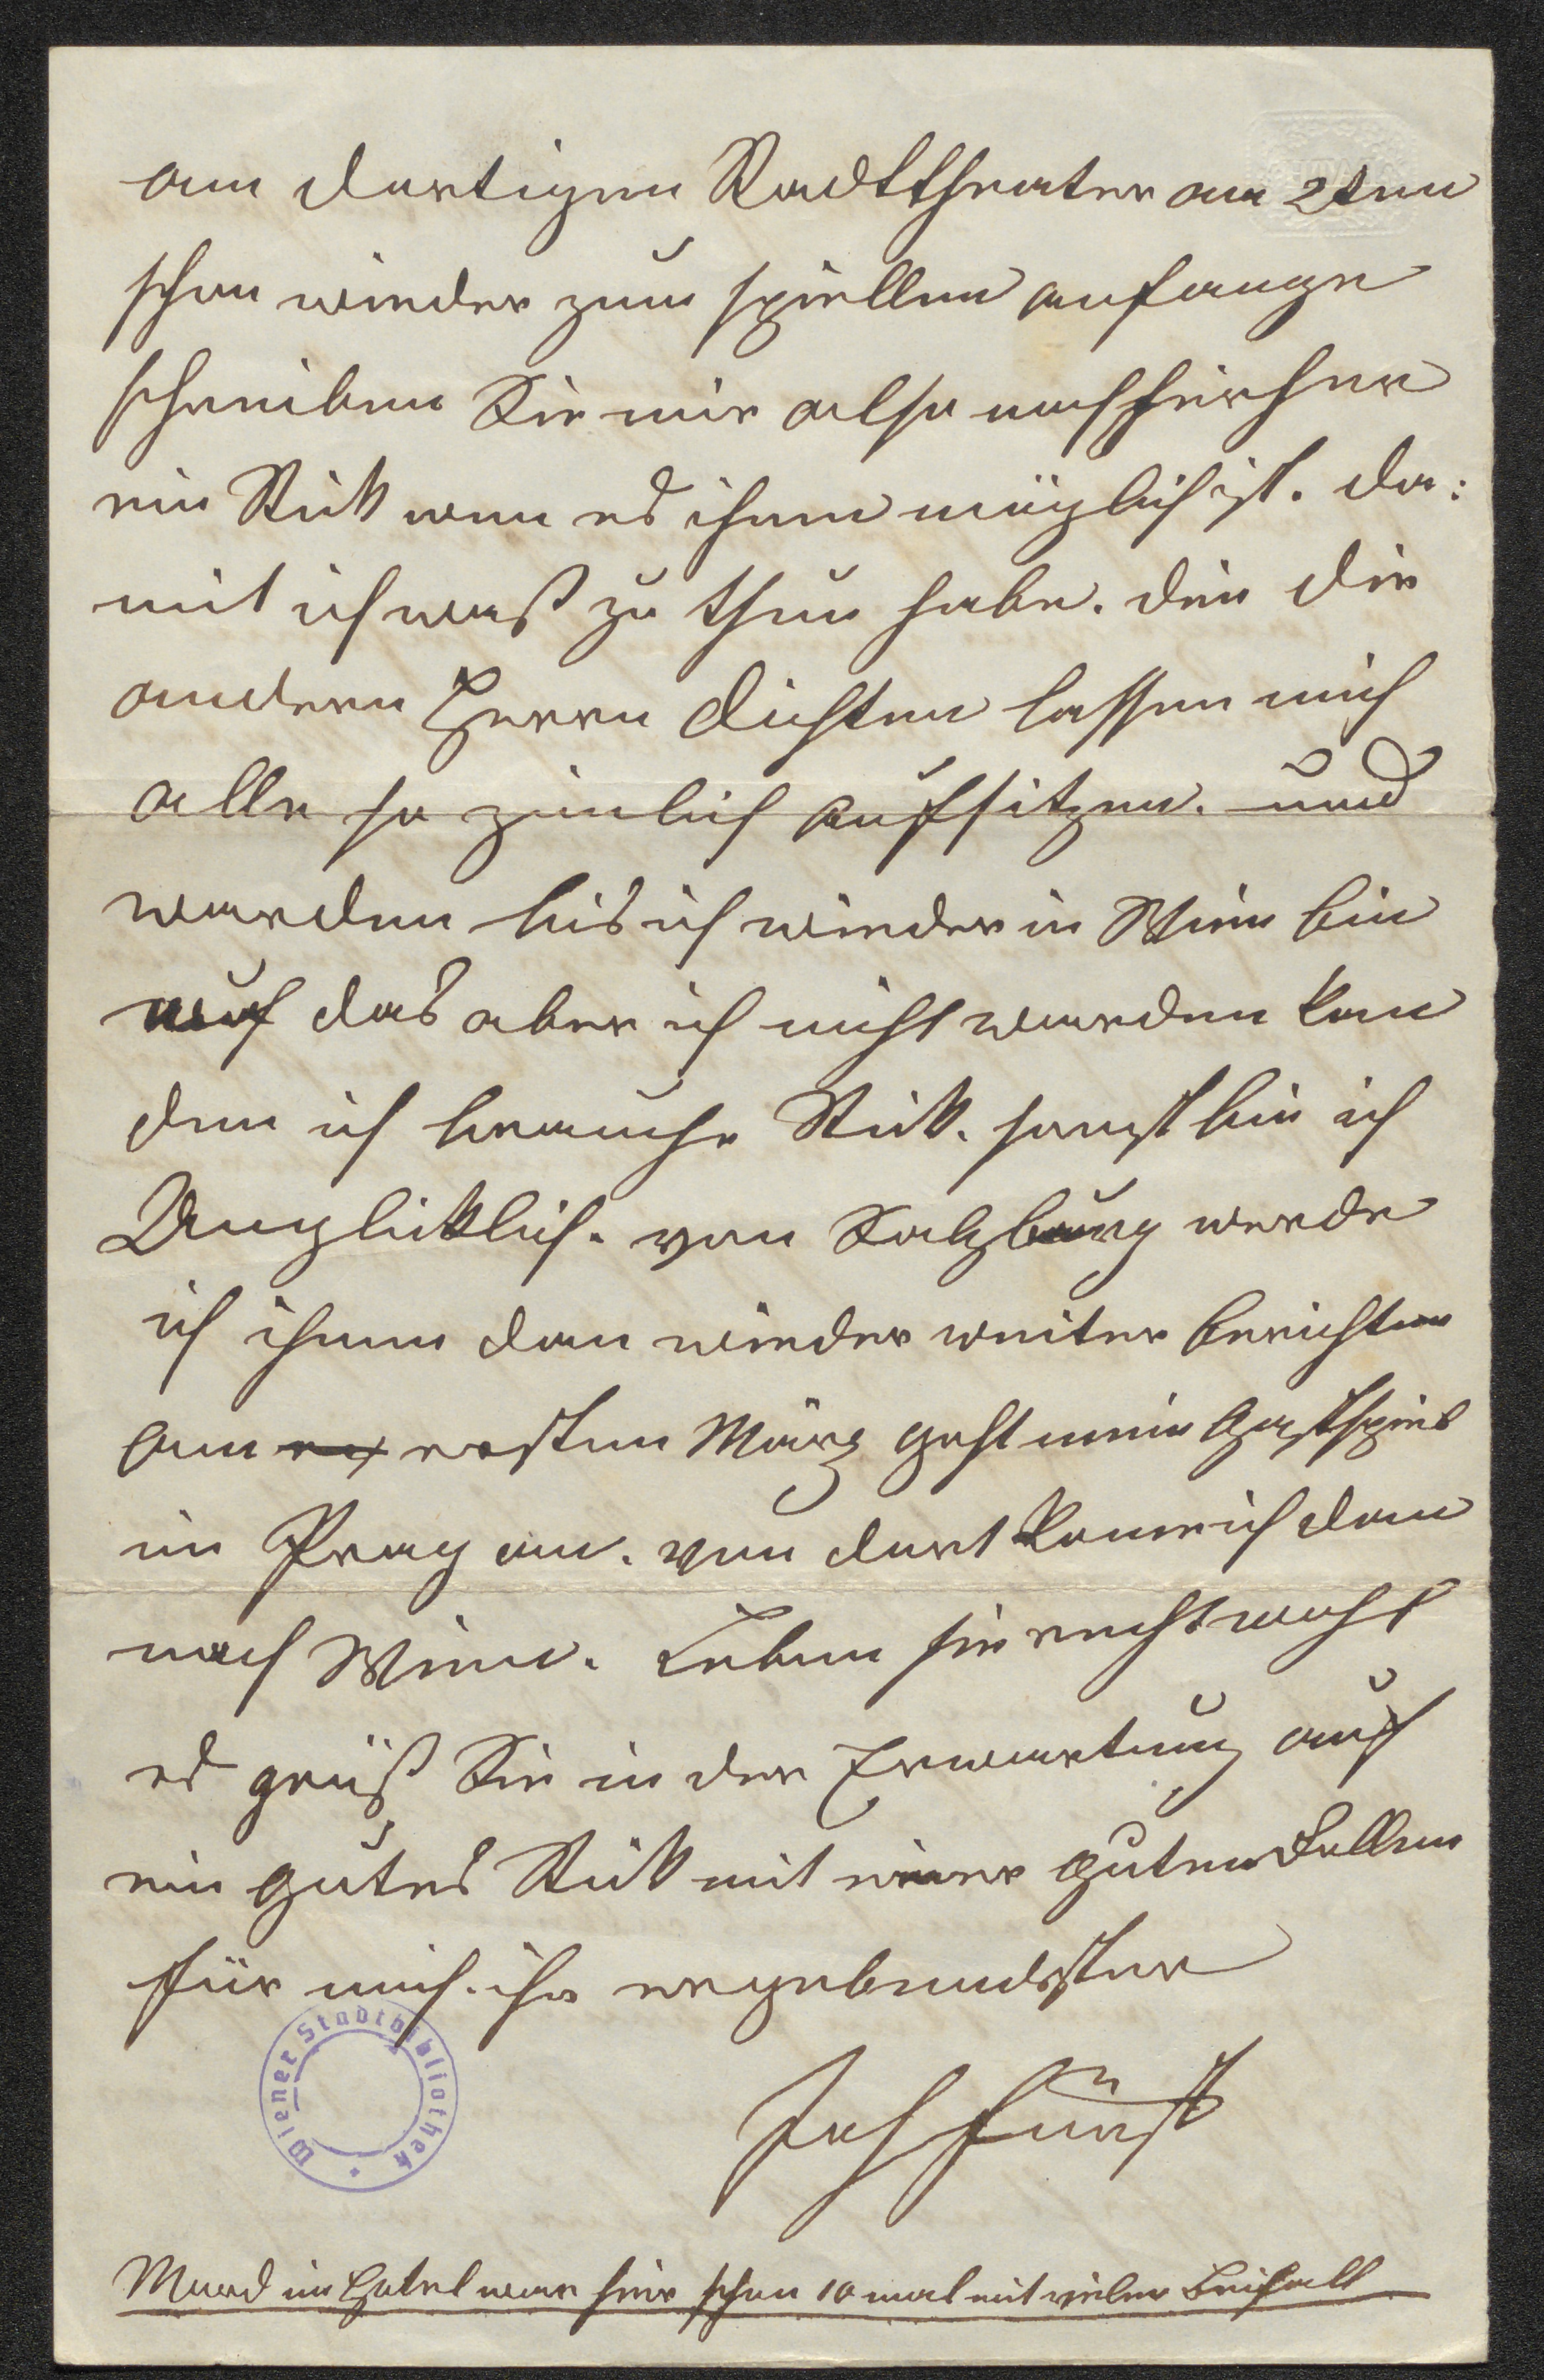 am dortigen Stadttheater am 2ten
schon wieder zum spiellen anfange
schreiben Sie mir also noch hierher
ein Stük wen es ihnen möglich ist. da:
mit ich waß zu thun habe. den die
andern Herrn Dichter lassen mich
alle so zimlich aufsitzen. und
warden bis ich wieder in Wien bin
auf das aber ich nicht warden kan
den ich brauche Stük. sonst bin ich
Unglüklich. von Salzburg werde
ich ihnen dan wieder weiter berichten
am ersten März geht mein Gastspiel
in Prag an. von dort kome ich dan
nach Wien. Leben sie recht wohl
es grüß Sie in der Erwartung auf
ein gutes Stük mit einer guten Rollen
für mich. ihr ergebendster
Joh Fürst
Mord im Hotel war hier schon 10 mal mit vielen Beifall
Wiener Stadtbibliothek